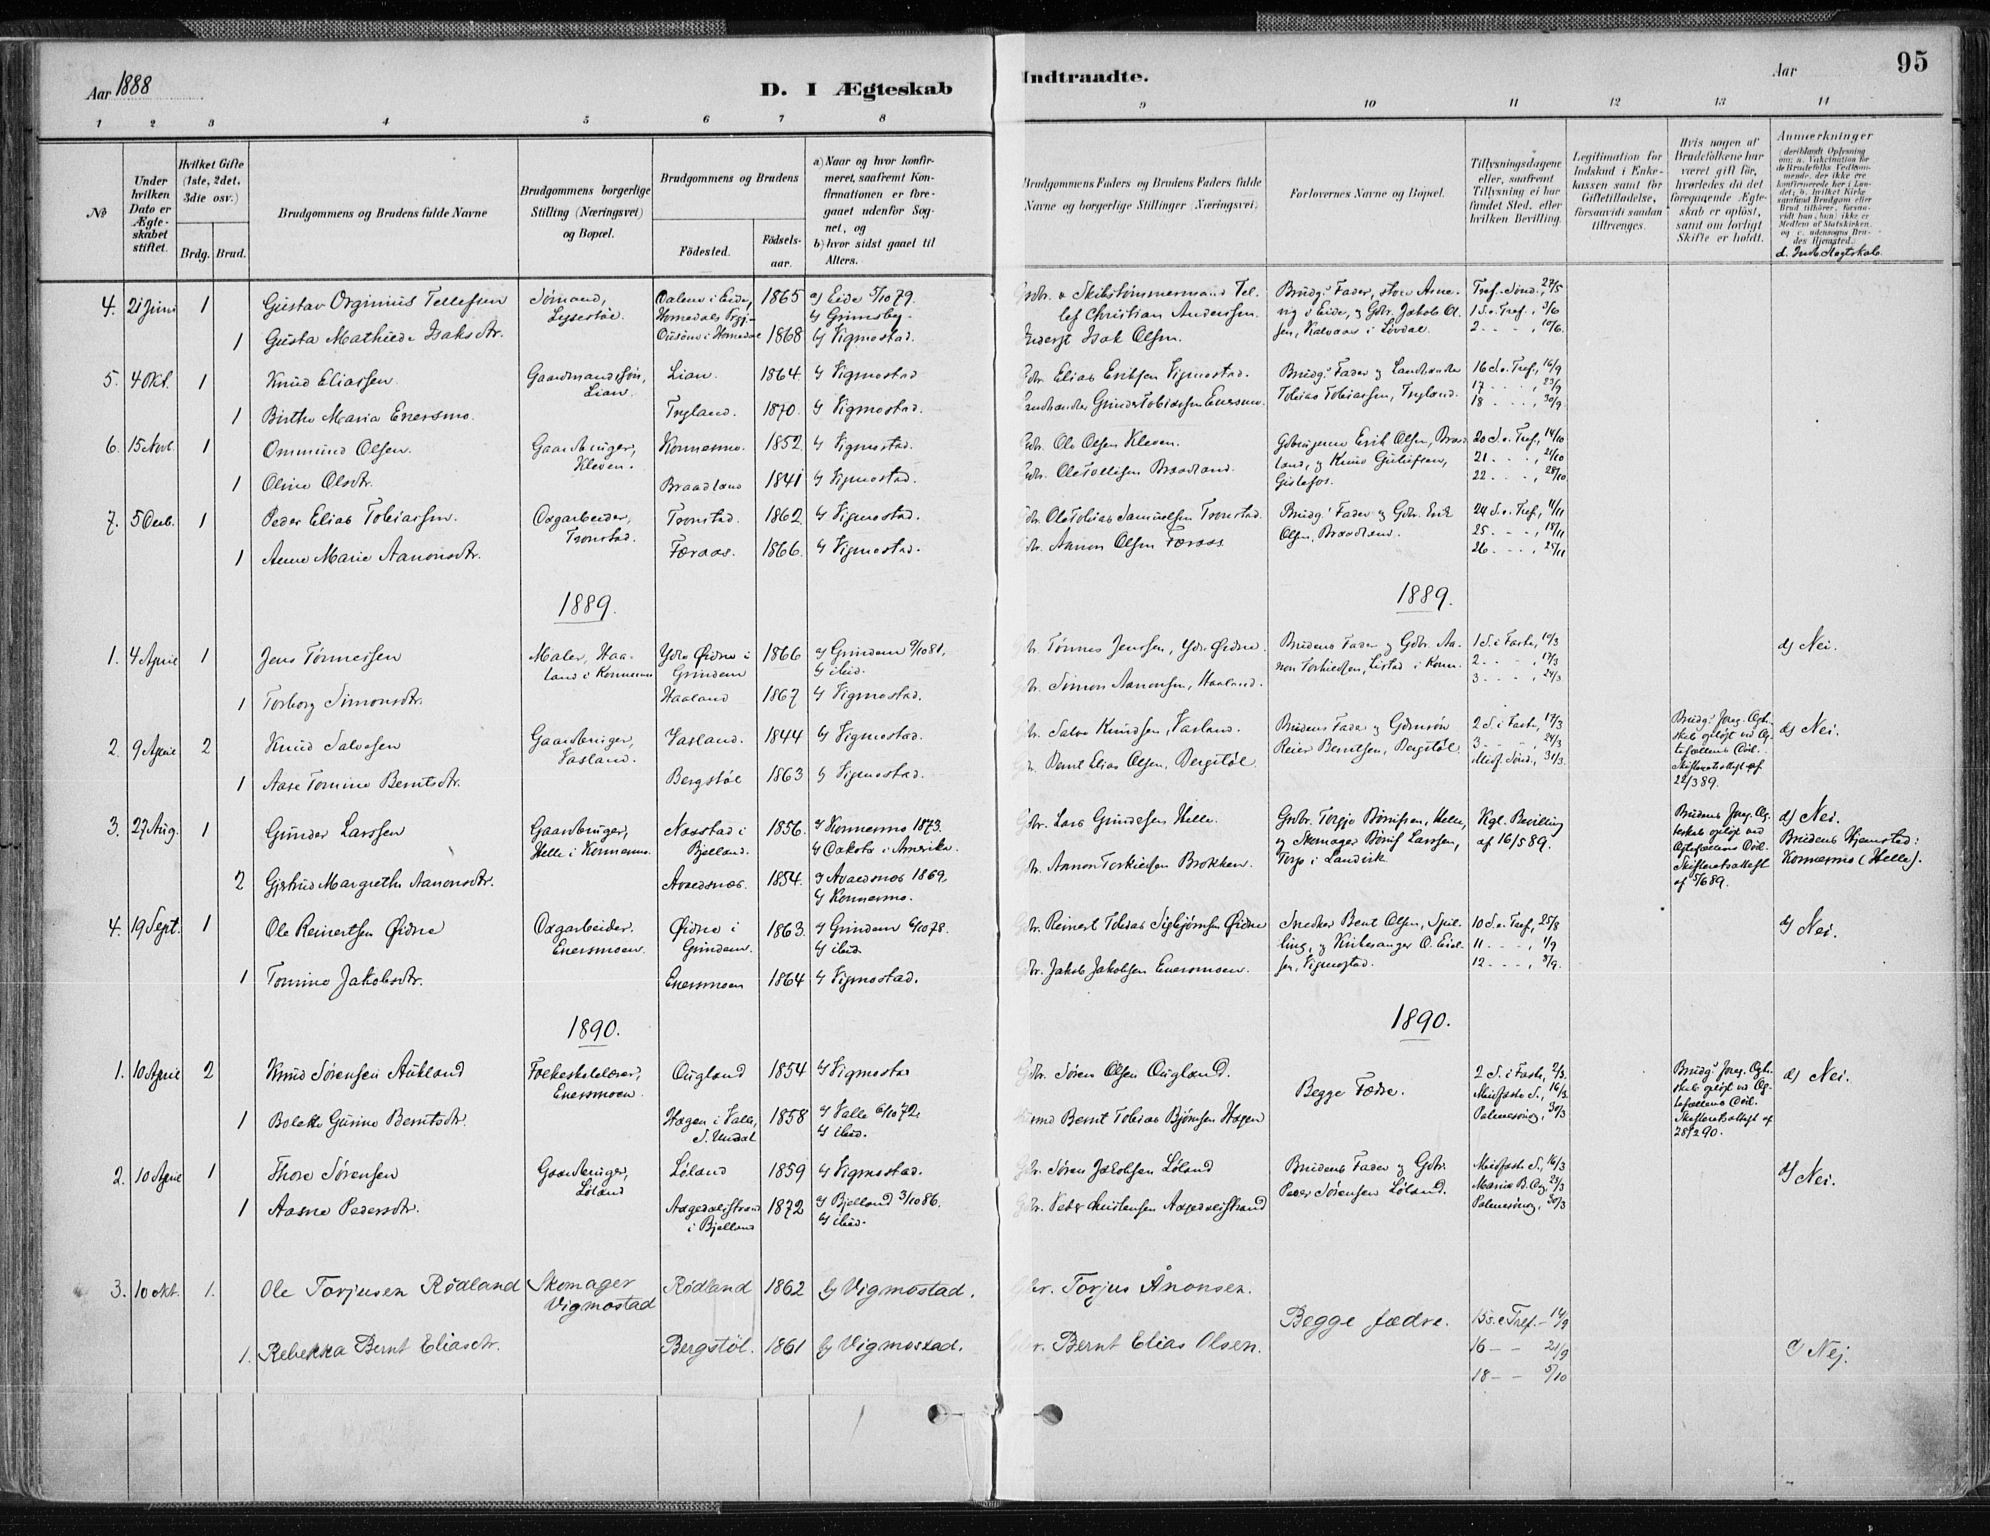 Aar 1888
D. I Ægteskab Indtraadte.
Aar
95
1 2 3 4 5 6 7 8 9 10 11 12 13 14
No
Under hvilken Dato er Ægteskabet stiftet.
Hvilket Gifte (1ste, 2det, 3die osv.)
Brdg. Brud.
Brudgommens og Brudens fulde Navne
Brudgommens borgerlige Stilling (Næringsvei) og Bopæl.
Brudgommens og Brudens
Födested.
Födselsaar.
a) Naar og hvor konfirmeret, saafremt Konfirmationen er foregaaet udenfor Sognet, og
b) hvor sidst gaaet til Alters.
Brudgommens Faders og Brudens Faders fulde Navne og borgerlige Stillinger (Næringsvei)
Forlovernes Navne og Bopæl.
Tillysningsdagene eller, saafremt Tillysning ei har fundet Sted, efter hvilken Bevilling.
Legitimation for Indskud i Enkekassen samt for Giftetilladelse, forsaavidt saadan tiltrænges.
Hvis nogen af Brudefolkene har været gift för, hvorledes da det foregaaende Ægteskab er oplöst, samt om lovligt Skifte er holdt.
Anmærkninger
4. 21 Juni 1 Gustav Orginius Tellefsen Sømand, Lyssestøl. Dalene i Eide, 1865 a) Eide 5/10 79. b) Grimsby.
Skibstømmermand Tellef Christian Anderssen.
Tref. Sønd., 27/5
1 S. e. Tref., 3/6
2 - - -, 10/6.
1 Gusta Mathilde Isaksdtr. 1868 b) Vigmostad.
Isak Olsen.
5. 4 Okt. 1 Knud Eliassen Gaardmandssøn, Lian. Lian. 1864 b) Vigmostad
Gdbr. Elias Eriksen Vigmostad. Brudg.s Fader og Landhandler Tobias Tobiassen, Tryland.
16 S. e. Tref., 16/9
17 - - -, 23/9
18 - - -, 30/9
1 Birthe Maria Enersmo. Tryland. 1870. b) Vigmostad.
Landhandler Gunder Tobiassen Enersmo.
6. 15 Novb. 1 Ommund Olsen Gaardbruger, Kleven. Konnesmo. 1852 b) Vigmostad.
Gdbr. Ole Olsen Kleven.
20 S. e. Tref., 14/10
21 - - -, 21/10
22 - - -, 28/10
1 Oline Olsdtr. Braadland 1841 b) Vigmostad.
7. 5 Decb. 1 Peder Elias Tobiassen. Dagarbeider, Tronstad. Tronstad. 1862 b) Vigmostad.
Gdbr. Ole Tobias Samuelsen Tronstad. Brudg.s Fader og Gdbr. Erik Olsen, Braadland.
24 S. e. Tref., 11/11
25 - - -, 18/11
26 - - -, 25/11
1 Anne Marie Aanonsdtr. Færaas. 1866 b) Vigmostad.
Gdbr. Aanon Olsen Færaas
1889. 1889.
1. 4 April 1 Jens Tønnessen Maler, Haaland i Konnesmo Ydre Øidne i Grindem 1866 a) Grindem 9/10 81. b) ibid.
Gdbr. Tønnes Jenssen, Ydr. Øidne. Brudens Fader og Gdbr. Aanon
1 S. i Faste, 10/3
2 - - -, 17/3
3 - - -, 24/3
d) Nei.
1 Torborg Simonsdtr. Haaland 1867 b) Vigmostad.
Gdbr. Simon Aanonsen, Haaland.
2. 9 April 2 Knud Salvesen Gaardbruger, Vasland. Vasland. 1844 b) Vigmostad.
Gdbr. Salve Knudsen, Vasland. Brudens Fader og Gdmsøn Reier Berntsen, Bergstøl
2 S. i Faste, 17/3
3 - - -, 24/3
Midf. Sønd., 31/3.
Brudg.s foreg. Ægteskab opløst ved Ægtefællens Død. Skifteretsattest af 22/3 89.
d) Nei.
1 Aase Tomine Berntsdtr. Bergstøl 1863 b) Vigmostad.
Gdbr. Bernt Elias Olsen, Bergstøl
3. 27 Aug. 1 Gunder Larssen Gaardbruger, Helle i Konnesmo. Naastad i Bjelland. 1856. a) Konnesmo 1873. b) Dakota i Amerika.
Gdbr. Lars Gundersen Helle.
Kgl. Bevilling af 16/5 89.
Brudens foreg. Ægteskab opløst ved Ægtefællens Død. Skifteretsattest af 5/6 89.
d) Nei. Brudens Hjemsted: Konnesmo (Helle).
2 Gjertrud Margrethe Aanonsdtr. Avaldsnes. 1854. a) Avaldsnes 1869. b) Konnesmo.
Gdbr. Aanon Torkildsen Brokken.
4. 19 Sept. 1 Ole Reinertsen Øidne Dagarbeider. Enersmoen. Øidne i Grindem. 1863 a) Grindem 6/10 78. b) ibid.
Gdbr. Reinert Tobias Sigbjørnsen Øidne Snedker Bent Olsen, Spilling, og Kirkesanger O. Eielsen, Vigmostad.
10 S. e. Tref., 25/8
11 - - -, 1/9
12 - - -, 8/9.
d) Nei.
1 Tomine Jakobsdtr. Enersmoen 1864 b) Vigmostad.
Gdbr. Jakob Jakobsen Enersmoen.
1890. 1890.
1. 10 April 2 Knud Sørensen Aukland Folkeskolelærer, Enersmoen. Ougland 1854 b) Vigmostad
Gdbr. Søren Olsen Ougland. Begge Fædre.
2 S. i Faste, 2/3.
Midfaste S., 16/3
Palmesøndg., 30/3
Brudg.s foreg. Ægteskab opløst ved Ægtefællens Død. Skifteretsattest af 28/2 90.
d) Nei.
1 Bolette Gurine Berntsdtr. Hagen i Valle, S. Undal 1858 a) Valle 6/10 72. b) ibid.
Bernt Tobias Bjørnsen Hagen
2. 10 April 1 Thore Sørensen Gaardbruger, Løland Løland 1859 b) Vigmostad.
Gdbr. Søren Jakobsen Løland Brudens Fader og Gdbr. Peder Sørensen Løland.
Midfaste S., 16/3
Mariæ B. Dg. 25/3
Palmesøndg., 30/3
d) Nei.
1 Aasne Pedersdtr. Aagedalsstrand i Bjelland 1872 a) Bjelland 3/10 86. b) ibid.
Gdbr. Peder Christensen Aagedalsstrand
3. 10 okt. 1. Ole Torjusen Rødland Skomager Vigmostad Rødland 1862 b) Vigmostad.
Gdbr. Torjus Ånonsen. Begge fædre.
15 s. e. Tref. - 14/9
16 - - 21/9
18 - - 5/10
1. Rebekka Bernt Eliasdtr. Bergstøl. 1861 b) Vigmostad.
Gdbr. Bernt Elias Olsen.
d) Nej.